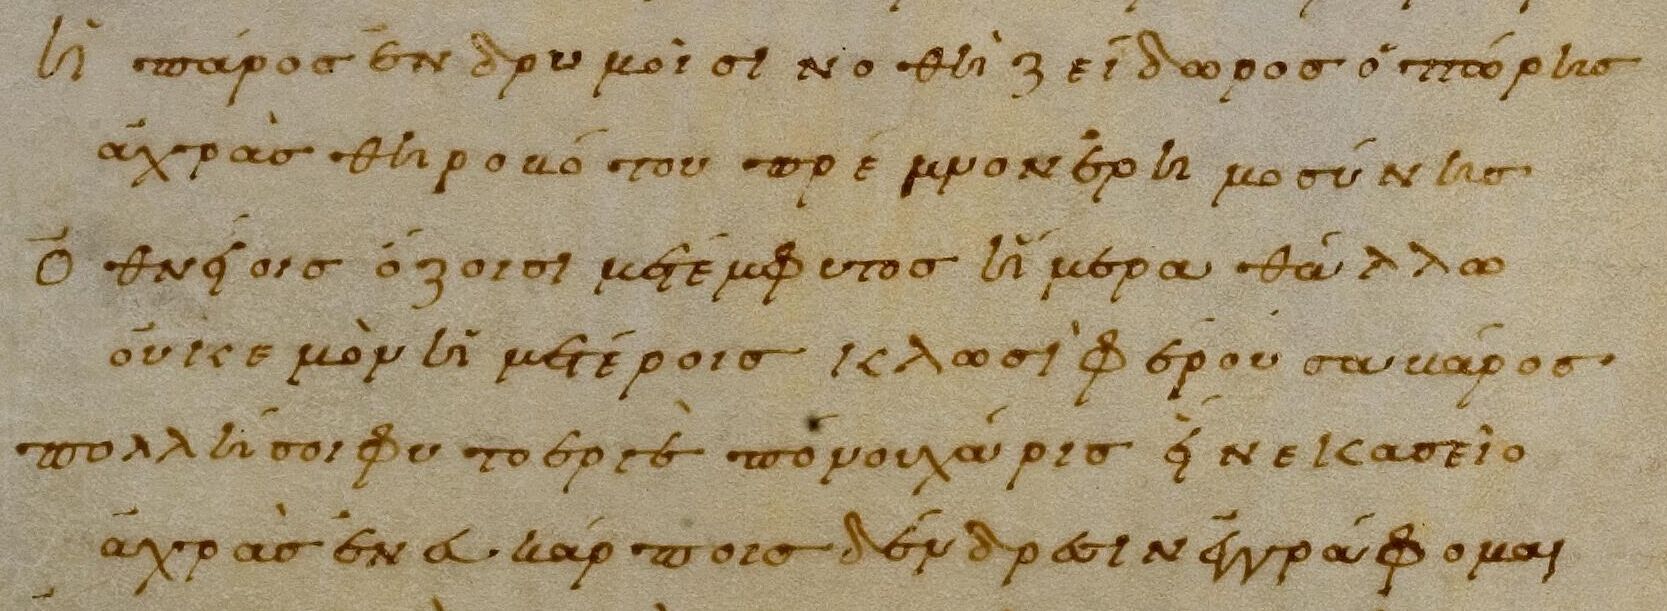 ἡ πάρος ἐν δρυμοῖσι νοθὴ ζείδωρος ὀπώρης
ἀχρὰς θηροβότου πρέμνον ἐρημοσύνης
ὀθνείοις ὄζοισι μετέμφυτος ἥμερα θάλλω
οὐκ ἐμὸν ἡμετέροις κλωσὶ φέρουσα βάρος
πολλή σοι φυτοεργὲ πόνου χάρις εἵνεκα σεῖο
ἀχρὰς ἐν εὐκάρποις δένδρεσιν ἐγγράφομαι